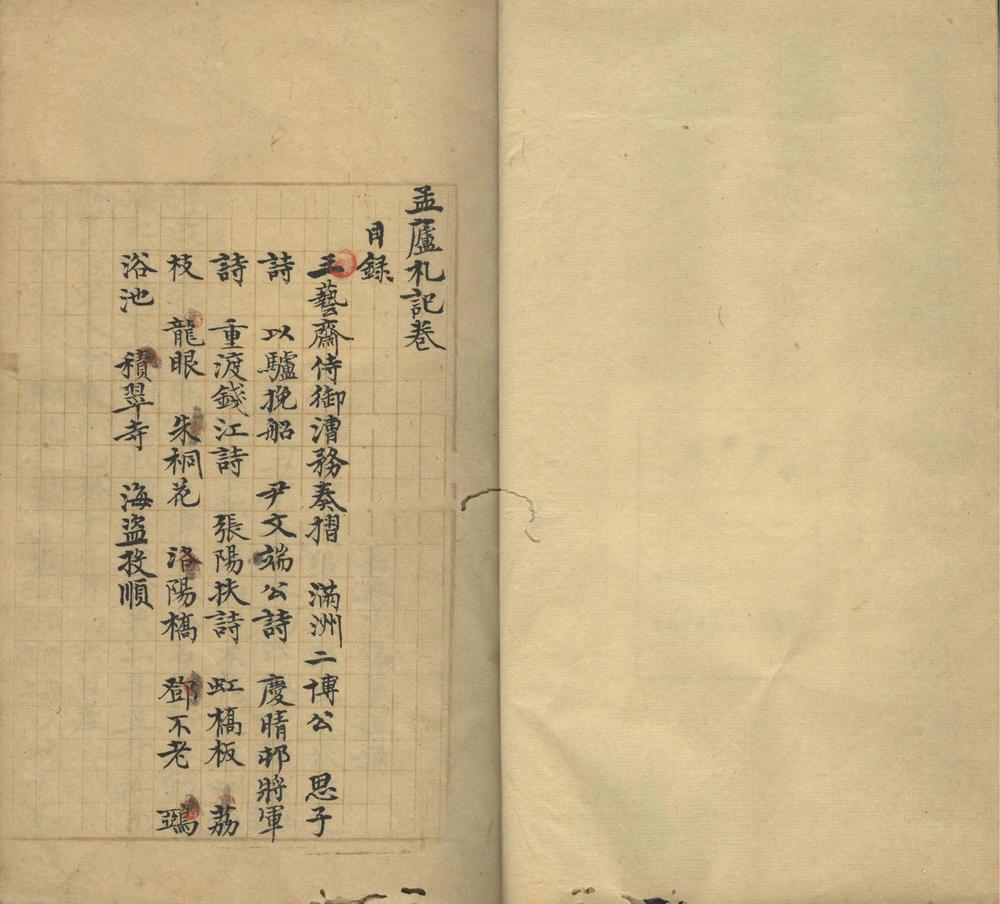 孟廬札記卷
目錄
王藝齋侍御漕務奏摺　滿洲二博公　思子
詩　以驢挽船　尹文端公詩　慶晴邨將軍
詩　重渡錢江詩　張陽扶詩　虹橋板　荔
枝　龍眼　朱桐花　洛陽橋　鄧不老　鵶
浴池　積翠寺　海盜投順